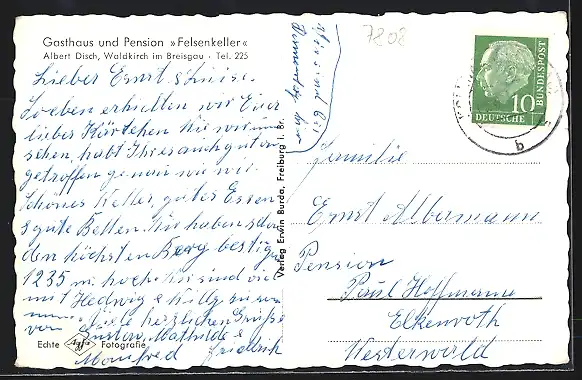 Gasthaus und Pension »Felsenkeller«
Albert Disch, Waldkirch im Breisgau · Tel. 225
Lieber Ernst & Luise.
Soeben erhielten wir Euer
liebes Kärtchen. Wie wir
sehen, habt Ihr es auch gut
getroffen genau wie wir.
Schönes Wetter, gutes Essen
gute Betten. Wir haben schon
den höchsten Berg bestiegen
1235 m hoch. Wir sind viel
mit Hedwig & Willy zusam
men. Viele herzliche Grüße
von Gustav, Mathilde &
Manfred Friedrich
Echte Agfa Fotografie
Verlag Erwin Burda, Freiburg i. Br.
wir sind bis
Donnerstag hier
7808
10
DEUTSCHE
BUNDESPOST
b
Familie
Ernst Albermann
Pension
Paul Hoffmann
Elkenroth
Westerwald